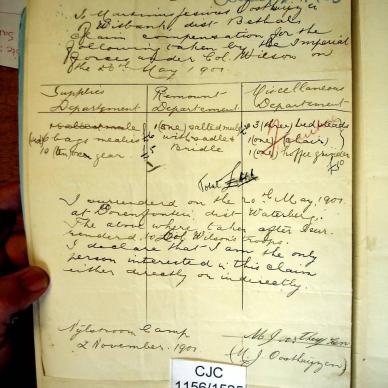 I Marthinus Jesaias Oosthuizen
Witbank, dist Bethal
Claim compensation for the
following taken by the Imperial
Forces under Col. Wilson on
the 20th May 1901.
Supplies Remount Miscellaneous
Departement Departement Departement
1 salted mule 1 (one) salted mule 3 (three) bedsteads
6 bags mealies with saddle & 1 (one) chair
10 (ten) ox gear. Bridle 1 (one) koffie grinder
Total
I surrenderd on the 20th May, 1901
at Doornfontein, dist Waterberg.
The above where taken after I sur-
renderd, to Col. Wilson's troops.
I declare that I am the only
person interested in this claim
either directly or indirectly.
Nylstroom Camp
2 November, 1901
M J Oosthuyzen
(M. J. Oosthuizen)
CJC